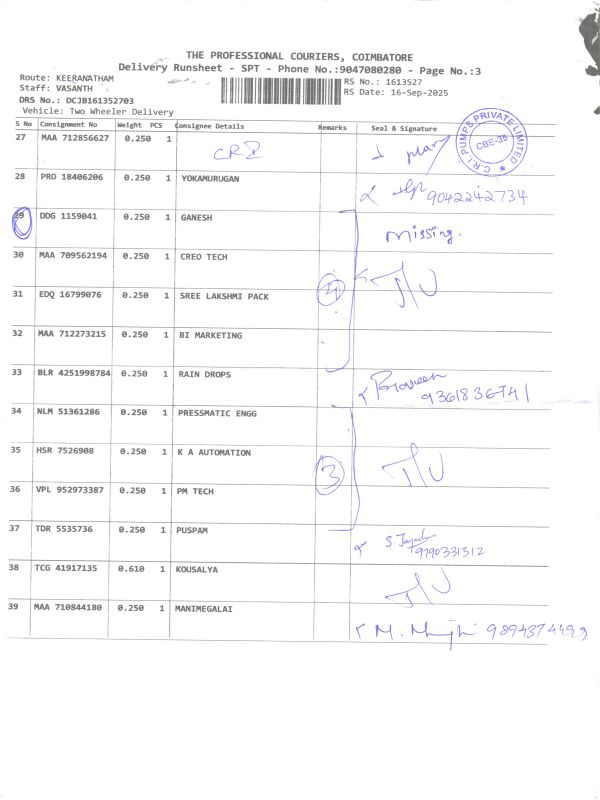 THE PROFESSIONAL COURIERS, COIMBATORE
Delivery Runsheet - SPT - Phone No.:9047080280 - Page No.:3
Route: KEERANATHAM
RS No.: 1613527
Staff: VASANTH
RS Date: 16-Sep-2025
DRS No.: DCJB161352703
Vehicle: Two Wheeler Delivery
S No Consignment No Weight PCS Consignee Details Remarks Seal & Signature
27 MAA 712856627 0.250 1 CRI
C.R.I PUMPS PRIVATE LIMITED CBE-35
28 PRO 18406206 0.250 1 YOKAMURUGAN 9042242734
29 DDG 1159041 0.250 1 GANESH Missing.
30 MAA 709562194 0.250 1 CREO TECH
31 EDQ 16799076 0.250 1 SREE LAKSHMI PACK 4
32 MAA 712273215 0.250 1 BI MARKETING
33 BLR 4251998784 0.250 1 RAIN DROPS Praveen 9361836741
34 NLM 51361286 0.250 1 PRESSMATIC ENGG
35 HSR 7526908 0.250 1 K A AUTOMATION 3
36 VPL 952973387 0.250 1 PM TECH
37 TDR 5535736 0.250 1 PUSPAM 9790331312
38 TCG 41917135 0.610 1 KOUSALYA
39 MAA 710844180 0.250 1 MANIMEGALAI M. 9894374499